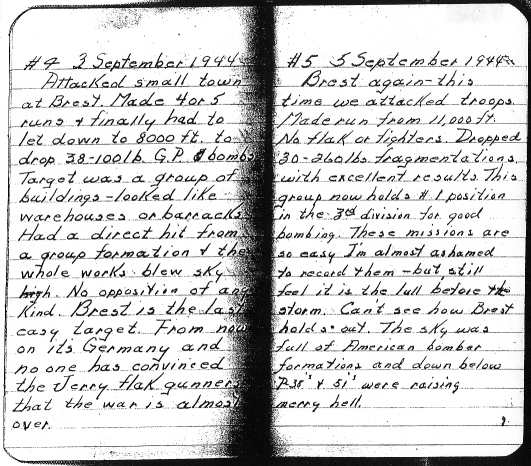 #4 3 September 1944
Attacked small town
at Brest. Made 4 or 5
runs & finally had to
let down to 8000 ft. to
drop 38-100lb. G.P. bombs
Target was a group of
buildings - looked like
warehouses or barracks
Had a direct hit from
a group formation & the
whole works blew sky
high. No opposition of any
kind. Brest is the last
easy target. From now
on its Germany and
no one has convinced
the Jerry flak gunners
that the war is almost
over.
#5 5 September 1944
Brest again - this
time we attacked troops.
Made run from 11,000 ft.
No flak or fighters. Dropped
30-260lbs fragmentations
with excellent results. This
group now holds #1 position
in the 3rd division for good
bombing. These missions are
so easy I'm almost ashamed
to record them - but still
feel it is the lull before the
storm. Can't see how Brest
holds out. The sky was
full of American bomber
formations and down below
P-38's & 51's were raising
merry hell.